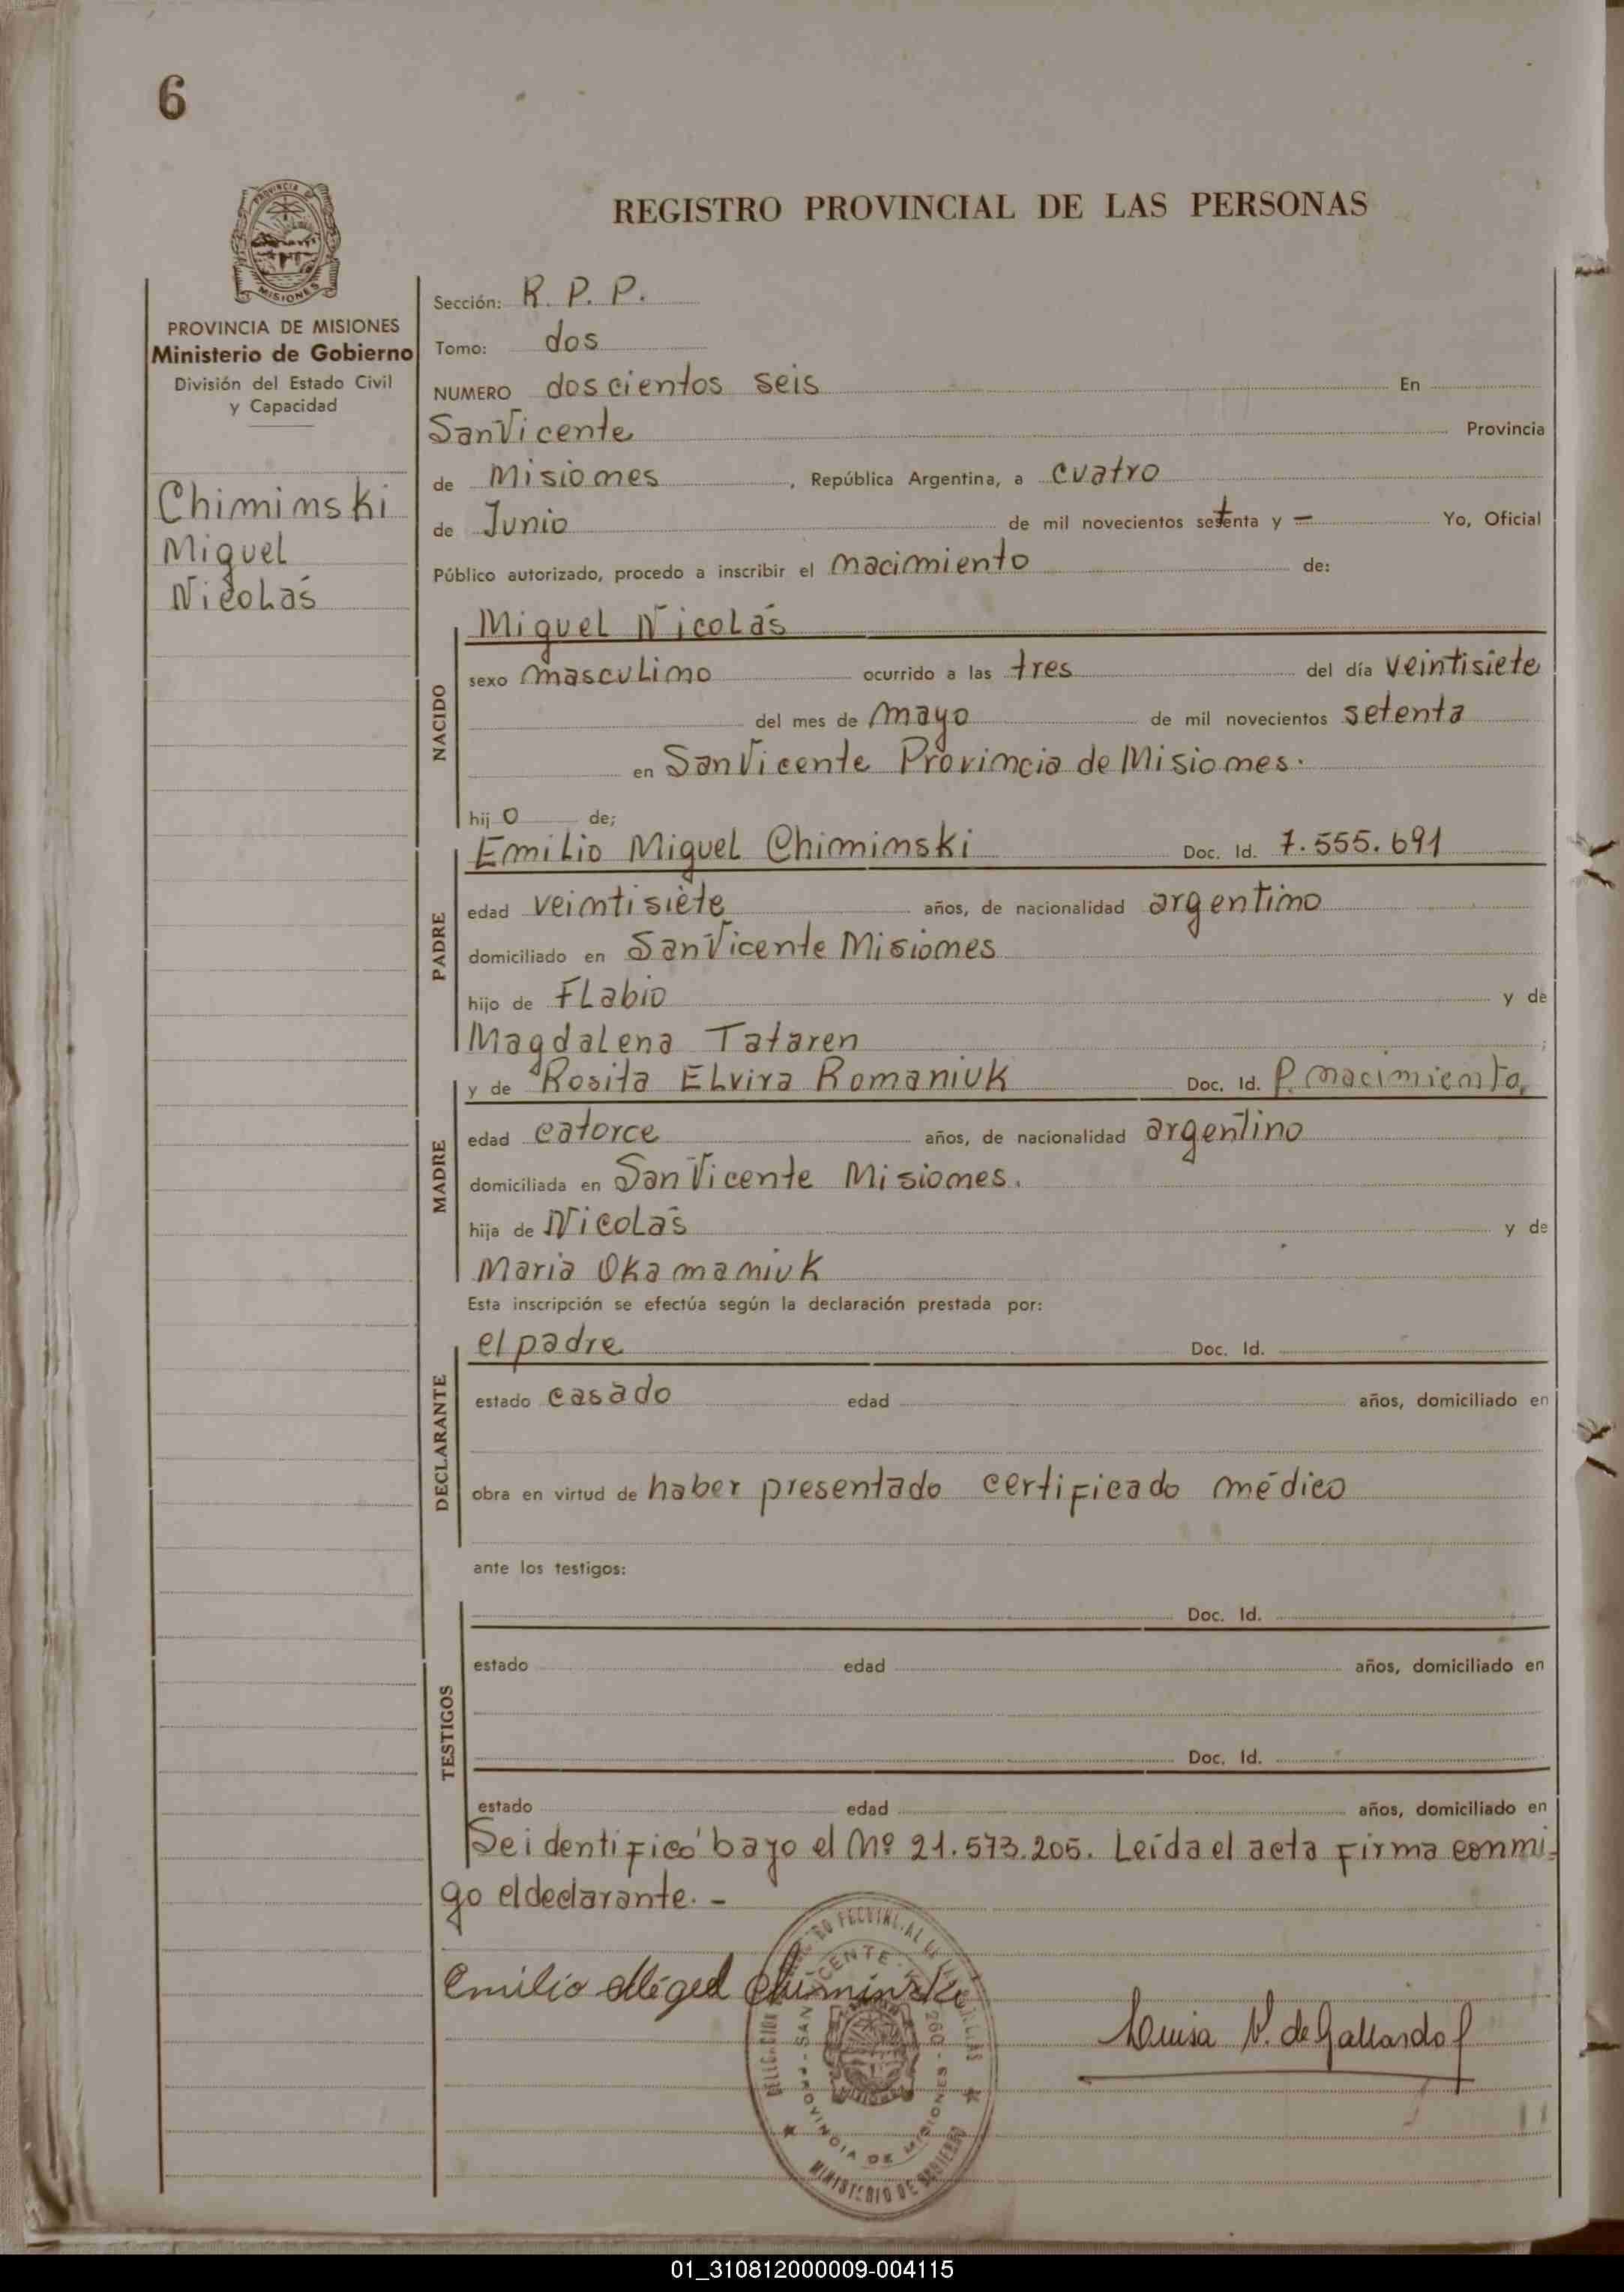 6
REGISTRO PROVINCIAL DE LAS PERSONAS
PROVINCIA DE MISIONES
Ministerio de Gobierno
División del Estado Civil
y Capacidad
Chiminski
Miguel
Nicolás
Sección: R. P. P.
Tomo: dos
NUMERO doscientos seis En
San Vicente Provincia
de Misiones, República Argentina, a cuatro
de Junio de mil novecientos setenta y — Yo, Oficial
Público autorizado, procedo a inscribir el nacimiento de:
NACIDO
Miguel Nicolás
sexo masculino ocurrido a las tres del día veintisiete
del mes de mayo de mil novecientos setenta
en San Vicente Provincia de Misiones.
hijo de;
PADRE
Emilio Miguel Chiminski Doc. Id. 7.555.691
edad veintisiete años, de nacionalidad argentino
domiciliado en San Vicente Misiones
hijo de Flabio y de
Magdalena Tataren ;
MADRE
y de Rosita Elvira Romaniuk Doc. Id. P. nacimiento,
edad catorce años, de nacionalidad argentino
domiciliada en San Vicente Misiones.
hija de Nicolás y de
Maria Okamaniuk
Esta inscripción se efectúa según la declaración prestada por:
DECLARANTE
el padre Doc. Id.
estado casado edad años, domiciliado en
obra en virtud de haber presentado certificado médico
ante los testigos:
TESTIGOS
Doc. Id.
estado edad años, domiciliado en
Doc. Id.
estado edad años, domiciliado en
Se identificó bajo el Nº 21.573.205. Leída el acta firma conmi-
go el declarante. -
Emilio Miguel Chiminski
Luisa V. de Gallardo
SAN VICENTE
PROVINCIA DE MISIONES
MINISTERIO DE GOBIERNO
01_310812000009-004115